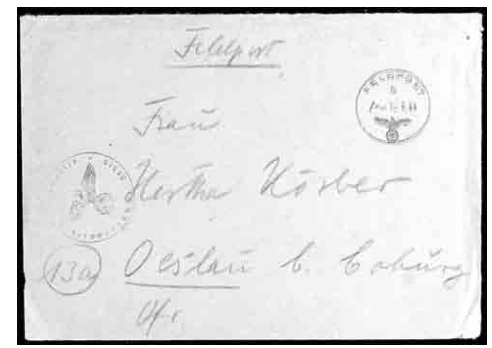 Feldpost
FELDPOST
b
Frau
Hertha Körber
13a Oeslau b. Coburg
Ofr.